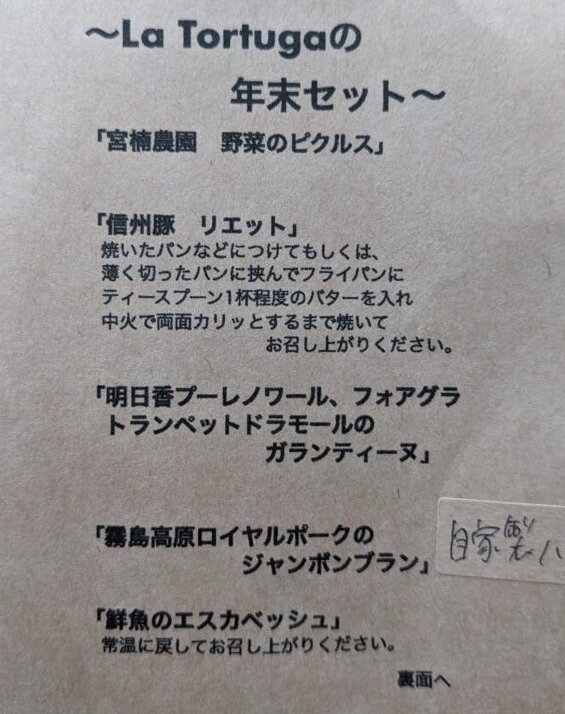 ～La Tortugaの
年末セット～
「宮楠農園　野菜のピクルス」
「信州豚　リエット」
焼いたパンなどにつけてもしくは、
薄く切ったパンに挟んでフライパンに
ティースプーン1杯程度のバターを入れ
中火で両面カリッとするまで焼いて
お召し上がりください。
「明日香プーレノワール、フォアグラ
トランペットドラモールの
ガランティーヌ」
「霧島高原ロイヤルポークの
ジャンボンブラン」
自家製ハ
「鮮魚のエスカベッシュ」
常温に戻してお召し上がりください。
裏面へ